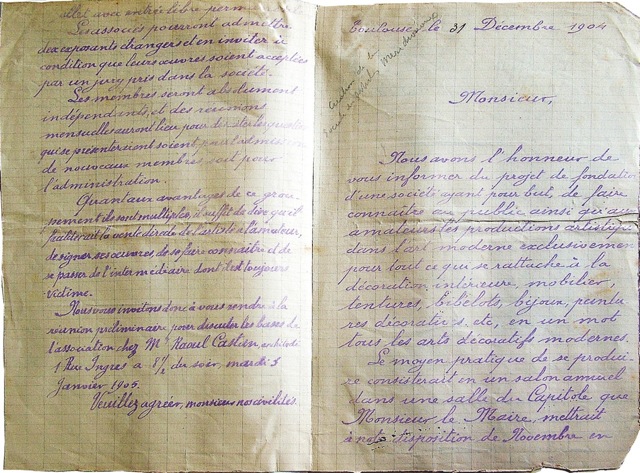 Toulouse, le 31 Décembre 1904
Création de la
Société des artistes Méridionaux
Monsieur,
Nous avons l'honneur de
vous informer du projet de fondation
d'une société ayant pour but, de faire
connaître au public ainsi qu'aux
amateurs les productions artistiques
dans l'art moderne exclusivement
pour tout ce qui se rattache à la
décoration intérieure, mobilier,
tentures, bibelots, bijoux, peintu
res décoratives etc, en un mot
tous les arts décoratifs modernes.
Le moyen pratique de se produi
re consisterait en un salon annuel
dans une salle du Capitole que
Monsieur le Maire, mettrait
à notre disposition de Novembre en
allet avec entrée libre
Les associés pourront admettre
des exposants étrangers et en inviter à
condition que leurs œuvres soient acceptées
par un jury pris dans la société.
Les membres seront absolument
indépendants, et des réunions
mensuelles auront lieu pour discuter les questions
qui se présenteraient soient pour l'admission
de nouveaux membres soit pour
l'administration.
Quant aux avantages de ce grou-
pement ils sont multiples, il suffit de dire qu'il
faciliterait la vente directe de l'artiste à l'amateur,
de signer ses œuvres, de se faire connaître et de
se passer de l'intermédiaire dont il est toujours
victime.
Nous vous invitons donc à vous rendre à la
réunion préliminaire pour discuter les bases de
l'association chez Mr Raoul Castan, architecte
1 Rue Ingres à 8 1/2 du soir, mardi 3
Janvier 1905.
Veuillez agréer, monsieur nos civilités.